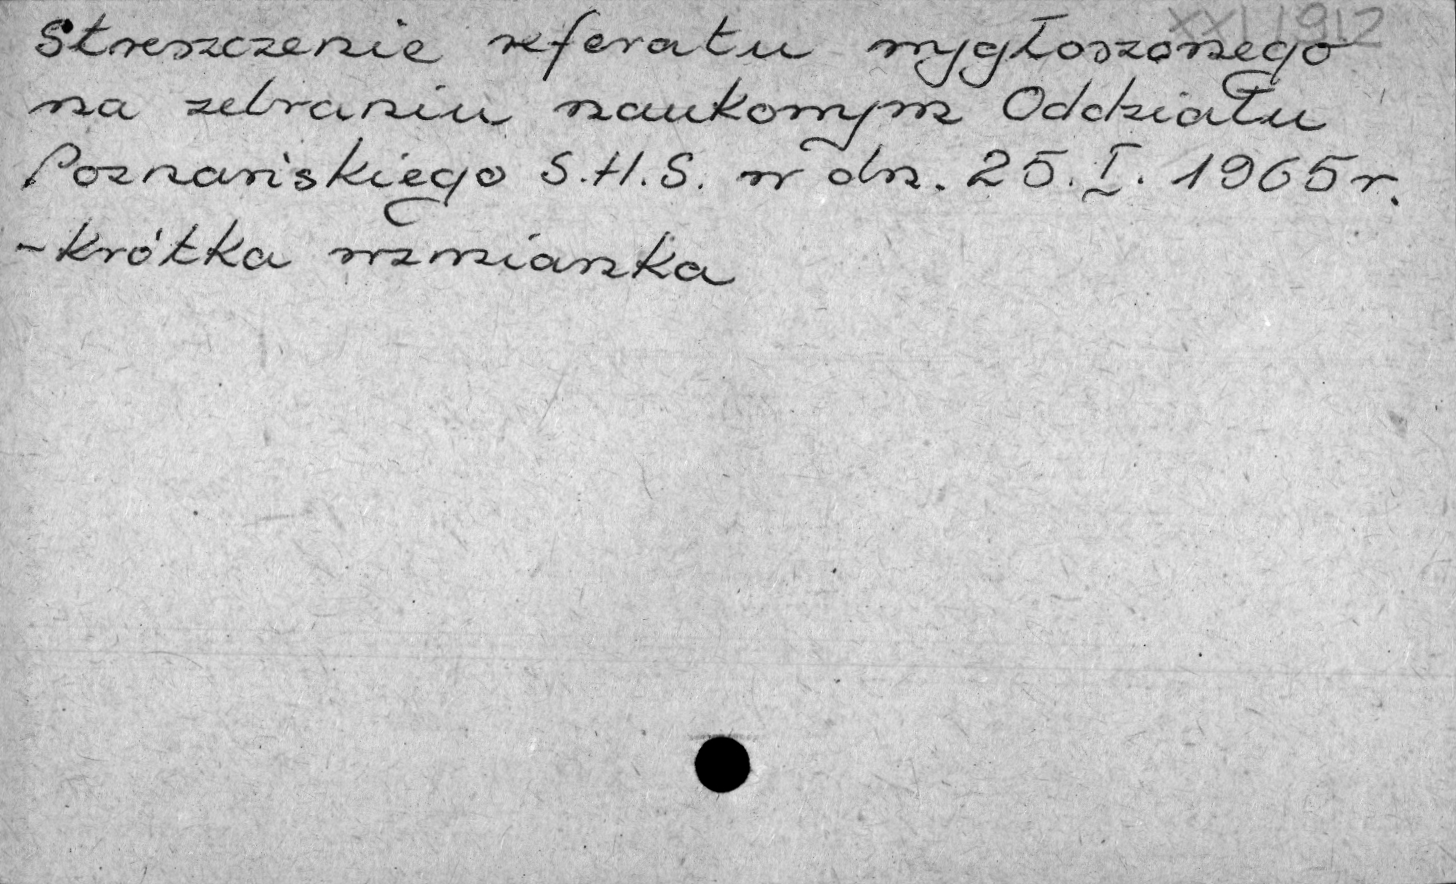 XXI 1912
Streszczenie referatu wygłoszonego
na zebraniu naukowym Oddziału
Poznańskiego S.H.S. w dn. 25. I. 1965 r.
- krótka wzmianka